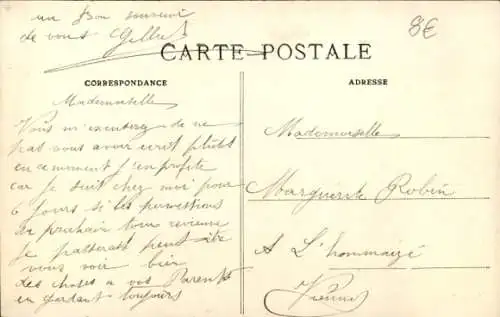 un Bon souvenir
de vous Gilbert
8€
CARTE POSTALE
CORRESPONDANCE
ADRESSE
Mademoiselle
Vous m'excuserez de ne
pas vous avoir écrit plutôt
en ce moment j'en profite
car je suit chez moi pour
6 jours si les permissions
au prochain tour revienne
je passerait peut être
vous voir bien
des choses a vos Parents
en gardant toujours
Mademoiselle
Marguerite Robin
A L'hommaizé
Vienne